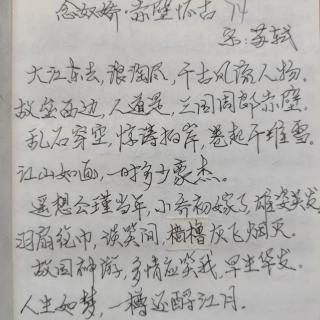 念奴娇·赤壁怀古 74
宋:苏轼
大江东去,浪淘尽,千古风流人物。
故垒西边,人道是,三国周郎赤壁。
乱石穿空,惊涛拍岸,卷起千堆雪。
江山如画,一时多少豪杰。
遥想公瑾当年,小乔初嫁了,雄姿英发,
羽扇纶巾,谈笑间,樯橹灰飞烟灭。
故国神游,多情应笑我,早生华发。
人生如梦,一樽还酹江月。